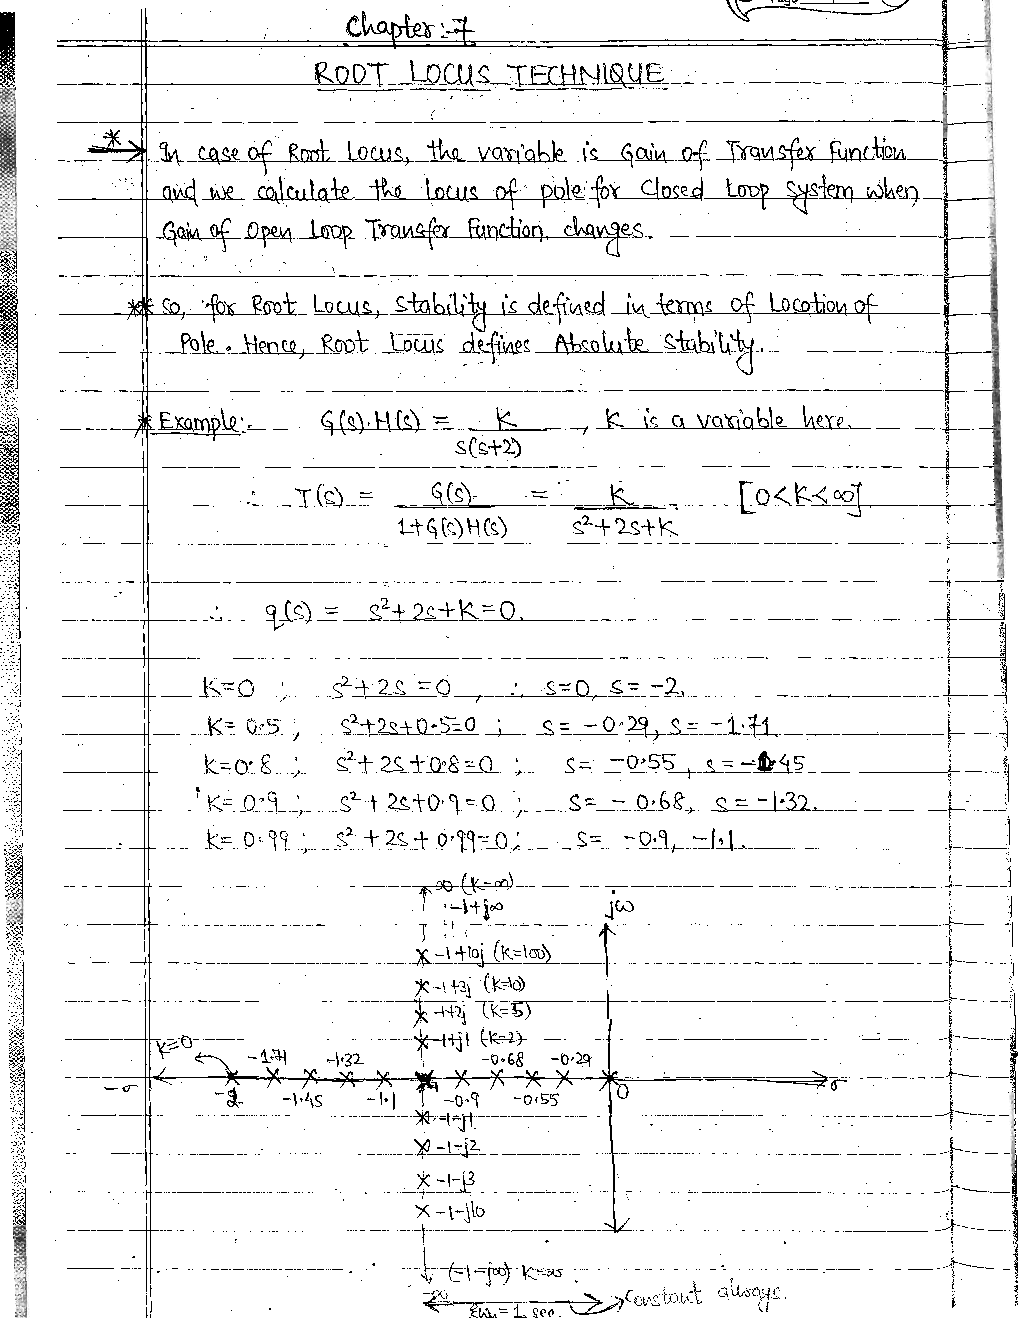 Chapter :- 7
ROOT LOCUS TECHNIQUE
* In case of Root Locus, the variable is Gain of Transfer Function
and we calculate the locus of pole for Closed Loop system when
Gain of Open Loop Transfer Function changes.
** So, for Root Locus, Stability is defined in terms of Location of
Pole. Hence, Root Locus defines Absolute Stability.
* Example:- G(s).H(s) = K / s(s+2) , K is a variable here.
∴ T(s) = G(s) / 1+G(s)H(s) = K / s²+2s+K [0<K<∞]
∴ q(s) = s²+2s+K=0.
K=0 ; s²+2s=0 , ∴ s=0, s=-2.
K=0.5 ; s²+2s+0.5=0 ; s= -0.29, s= -1.71
K=0.8 ; s²+2s+0.8=0 ; s= -0.55, s= -1.45
K=0.9 ; s²+2s+0.9=0 ; s= -0.68, s= -1.32.
K=0.99 ; s²+2s+0.99=0 ; s= -0.9, -1.1.
∞ (K=∞)
-1+j∞
jω
-1+10j (K=100)
-1+3j (K=10)
-1+2j (K=5)
-1+j1 (K=2)
K=0
-1.71 -1.32 -0.68 -0.29
-σ σ
-2 -1.45 -1.1 -1 -0.9 -0.55 0
-1-j1
-1-j2
-1-j3
-1-j10
(-1-j∞) K=∞
-∞
Constant always.
ξωn = 1 sec.